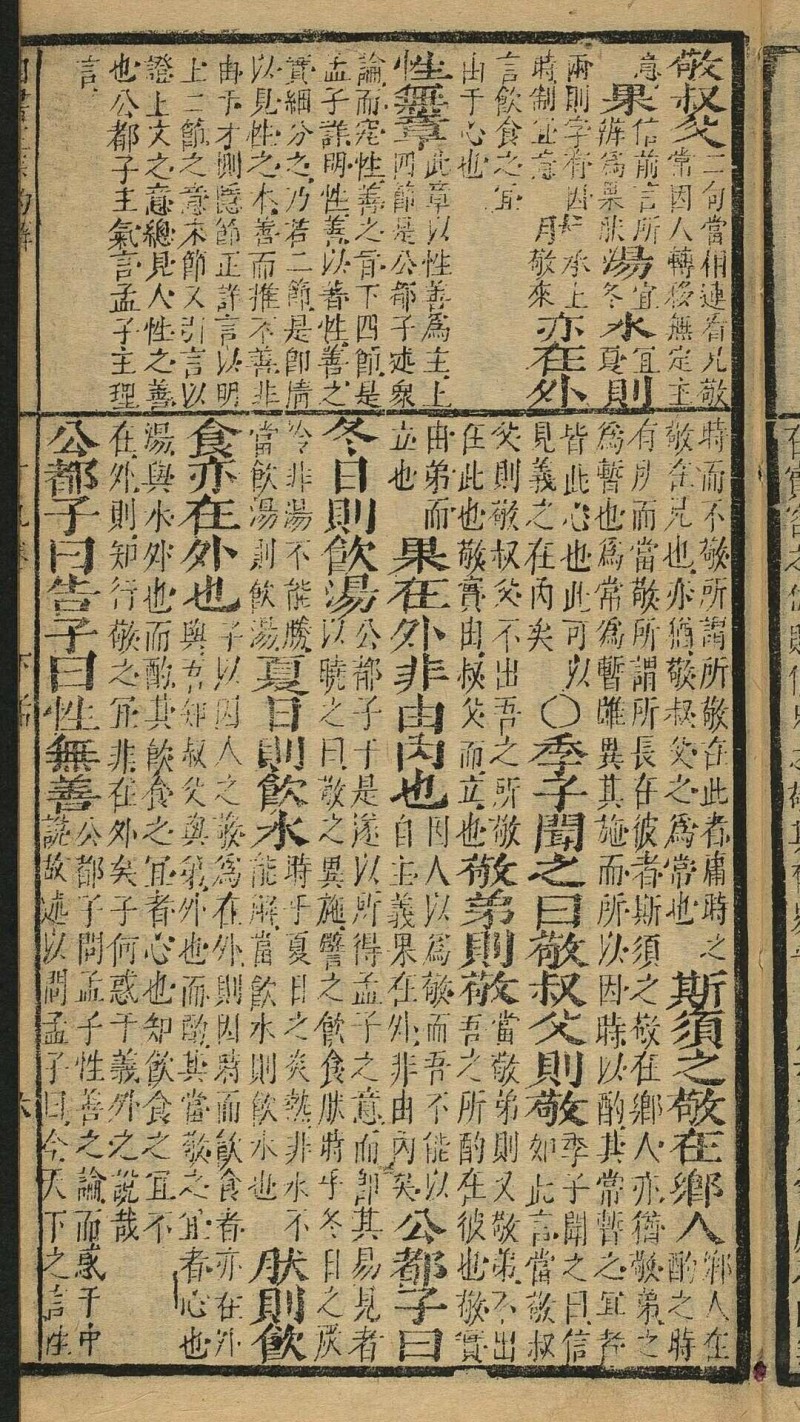 敬叔父
二句當相連看兄敬
常因人轉移無定主
意
果
信前言所
辨為果然
湯
宜
冬
水
宜
夏
則
兩則字有因
承上
時制宜意
月敬來
亦在外
言飲食之宜
由于心也
性無章
此章以性善為主上
四節是公都子述衆
論而究性善之旨下四節是
孟子詳明性善以著性善之
實細分之乃若二節是卽情
以見性之本善而推不善非
由于才惻隱節正詳言以明
上二節之意末節又引言以
證上文之意總見人性之善
也公都子主氣言孟子主理
言
時而不敬所謂所敬在此者庸時之
敬在兄也亦猶敬叔父之為常也
斯須之敬在鄉人
鄉人在
酌之時
有所而當敬所謂所長在彼者斯須之敬在鄉人亦猶敬弟之
為暫也為常為暫雖異其施而所以因時以酌其常暫之宜者
皆此心也此可以
見義之在內矣
○季子聞之曰敬叔父則敬
季子聞之曰信
如此言當敬叔
父則敬叔父不出吾之所敬
在此也敬實由叔父而立也
敬弟則敬
當敬弟則又敬弟不出
吾之所酌在彼也敬實
由弟而
立也
果在外非由內也
因人以為敬而吾不能以
自主義果在外非由內矣
公都子曰
冬日則飲湯
公都子于是遂以所得孟子之意而即其易見者
以曉之曰敬之異施譬之飲食然時乎冬日之厥
冷非湯不能勝
當飲湯則飲湯
夏日則飲水
時乎夏日之炎熱非水不
能解當飲水則飲水也
然則飲
食亦在外也
子以因人之敬為在外則因時而飲食者亦在外
與吾知叔父與弟外也而酌其當敬之宜者心也
湯與水外也而酌其飲食之宜者心也知飲食之宜不
在外則知行敬之宜非在外矣子何惑于義外之說哉
公都子曰告子曰性無善
公都子問孟子性善之論而惑于中
說故述以問孟子曰今天下之言性